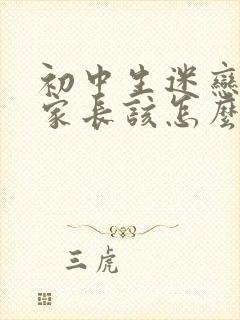 初中生迷戀
家長該怎麼
三虎